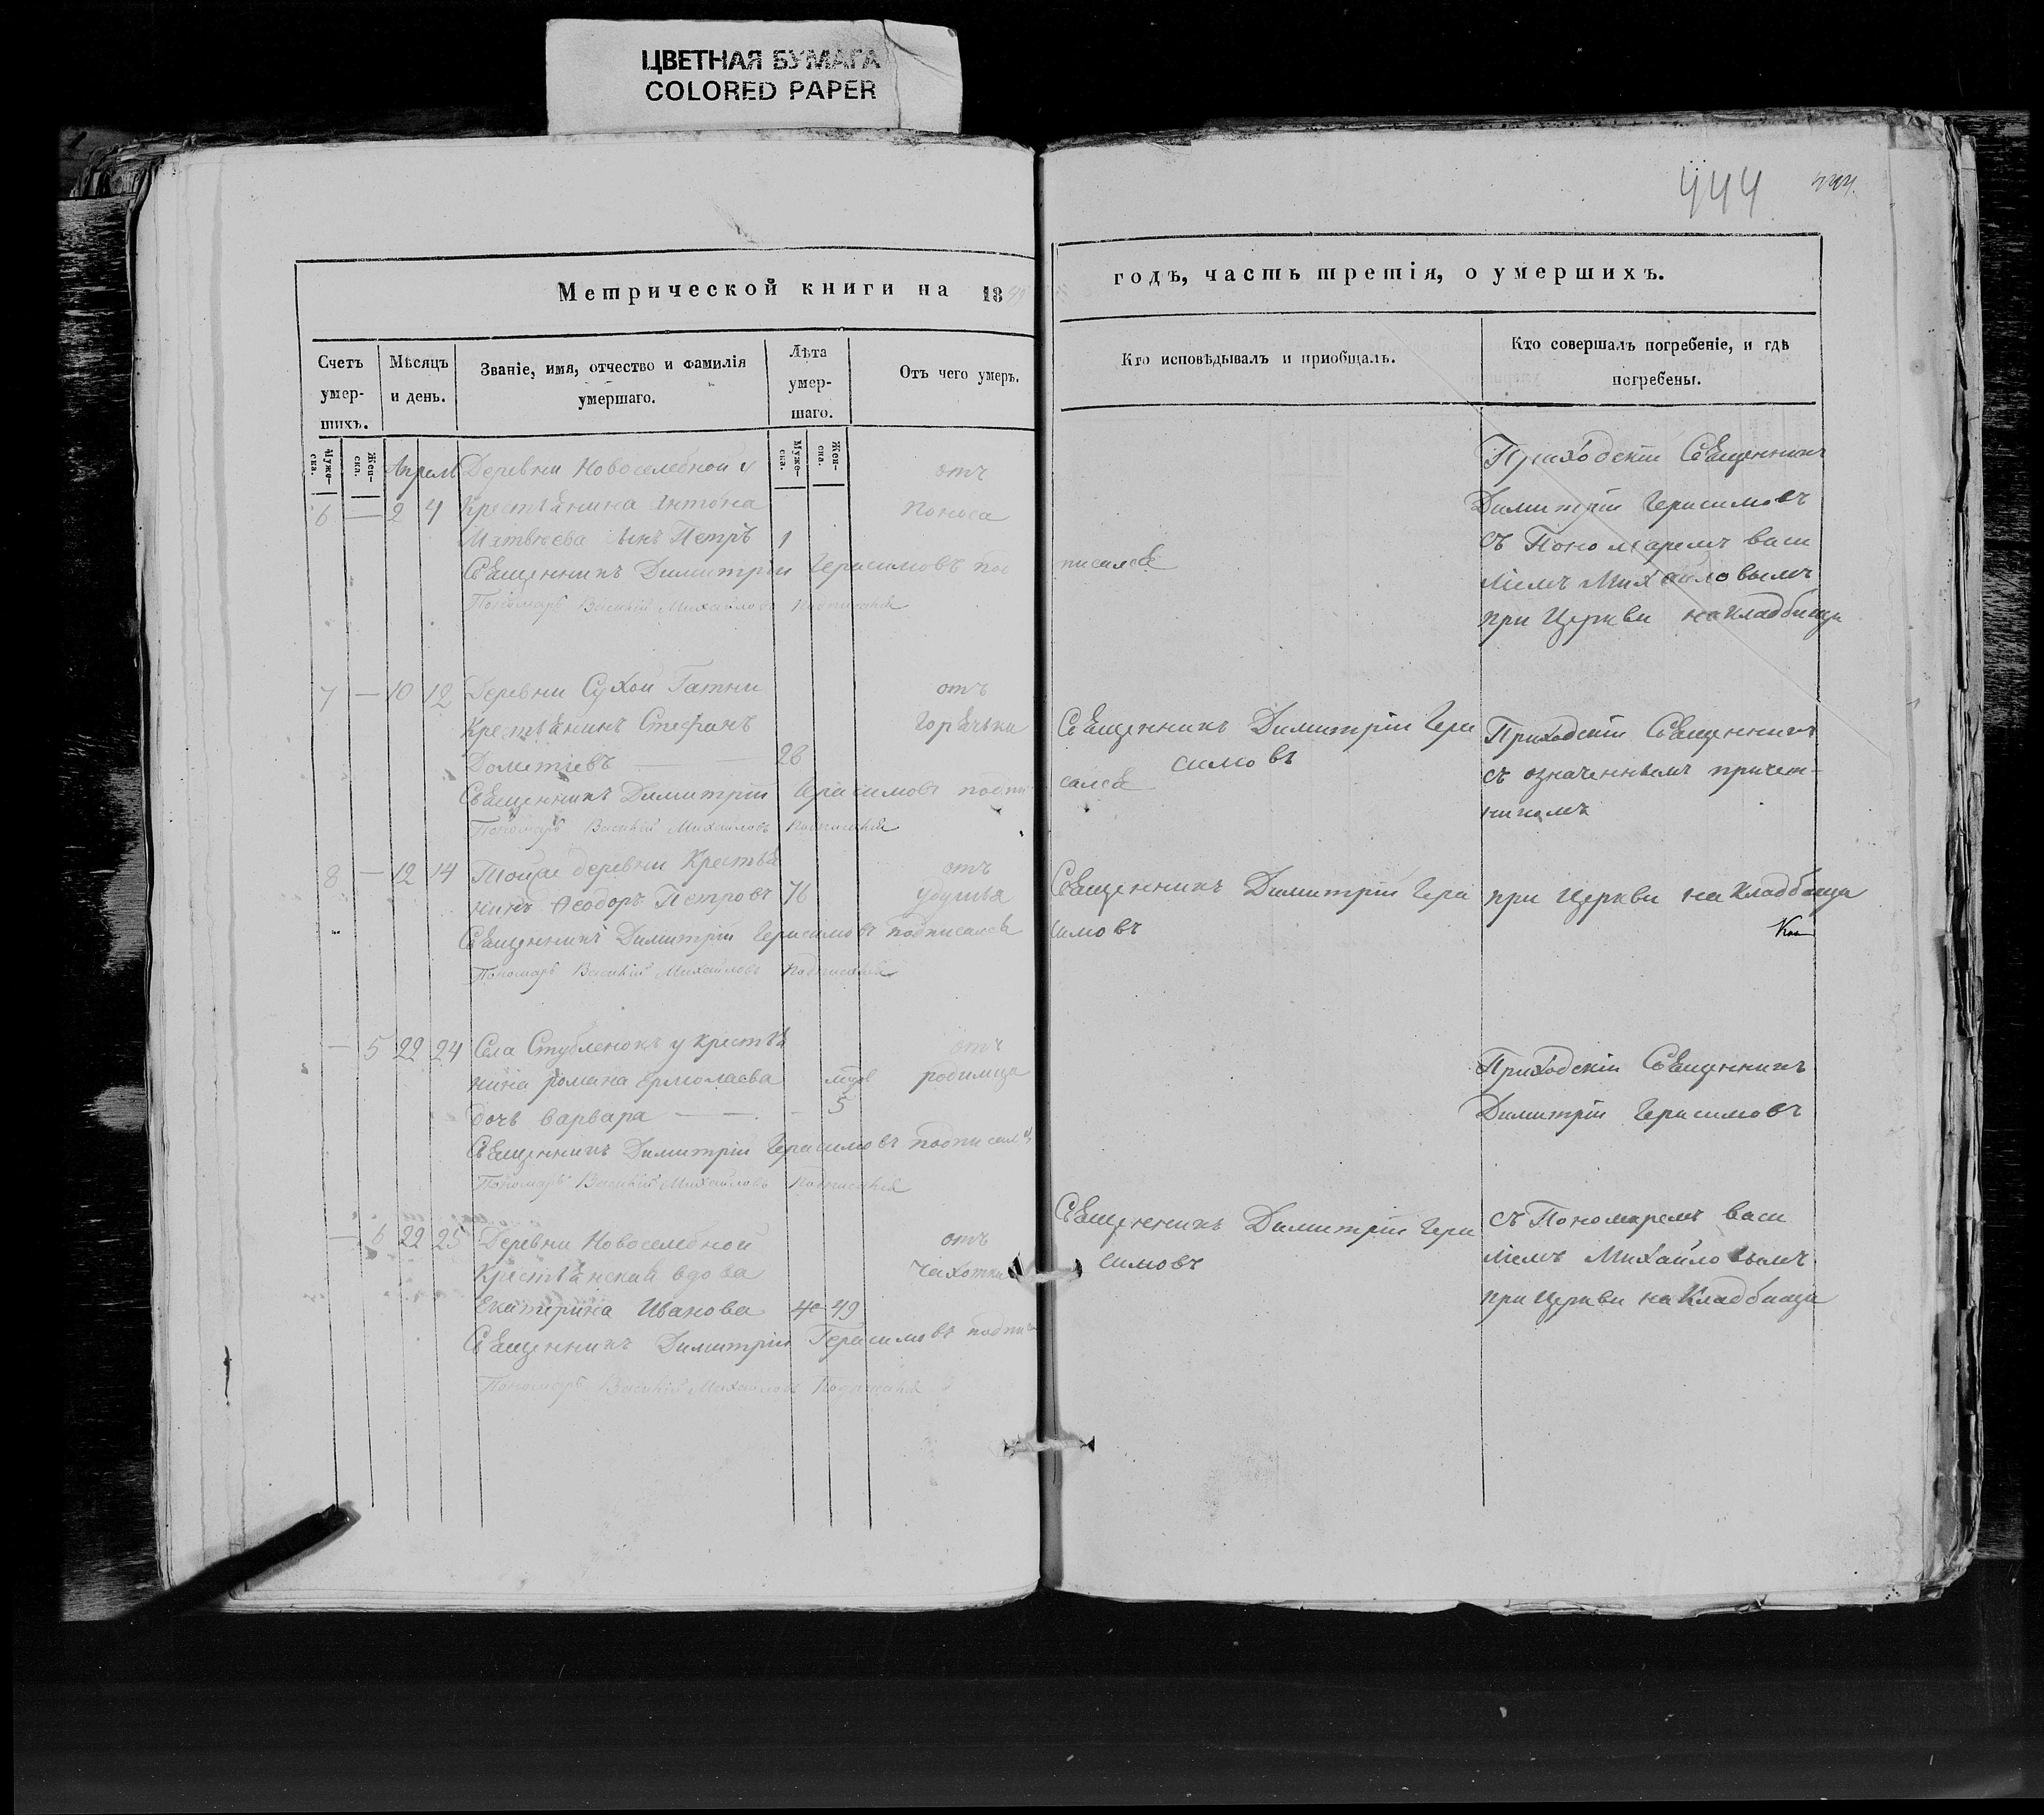 ЦВЕТНАЯ БУМАГА
COLORED PAPER
444
Метрической книги на 18
годъ, часть третія, о умершихъ.
Счетъ умер-шихъ.
Мѣсяцъ и день.
Званіе, имя, отчество и фамилія умершаго.
Лѣта умер-шаго.
Отъ чего умеръ.
Кто исповѣдывалъ и пріобщалъ.
Кто совершалъ погребеніе, и гдѣ погребены.
Муже-ска.
Жен-ска.
Муже-ска.
Жен-ска.
Апрель Деревни Новоселебной у отъ
6 — 2 4 Крестьянина Антона поноса
Матвѣева сынъ Петръ 1
Священникъ Димитрій Герасимовъ подписался
Пономарь Василій Михайловъ подписался
Приходскій Священникъ
Димитрій Герасимовъ
съ Пономаремъ Васи
ліемъ Михайловымъ
при Церкви на кладбище
7 — 10 12 Деревни Сухой Гатни отъ
Крестьянинъ Стефанъ горячьки
Дометіевъ — 26
Священникъ Димитрій Герасимовъ подписался
Пономарь Василій Михайловъ подписался
Священникъ Димитрій Гера
симовъ
Приходскій Священникъ
съ означеннымъ причет-
никомъ
8 — 12 14 Тойже деревни Крестья отъ
нинъ Ѳеодоръ Петровъ 76 удушья
Священникъ Димитрій Герасимовъ подписался
Пономарь Василій Михайловъ подписался
Священникъ Димитрій Гера
симовъ
при Церкви на кладбища
— 5 22 24 Села Стубленокъ у крестья отъ
нина Романа Ермолаева родимца
дочь Варвара — 5
Священникъ Димитрій Герасимовъ подписался
Пономарь Василій Михайловъ подписался
Приходскій Священникъ
Димитрій Герасимовъ
— 6 22 25 Деревни Новоселебной отъ
Крестьянская вдова чахотки
Екатерина Иванова 49
Священникъ Димитрій Герасимовъ
Пономарь Василій Михайловъ подписался
Священникъ Димитрій Гера
симовъ
съ Пономаремъ Васи
ліемъ Михайловымъ
при Церкви на кладбища